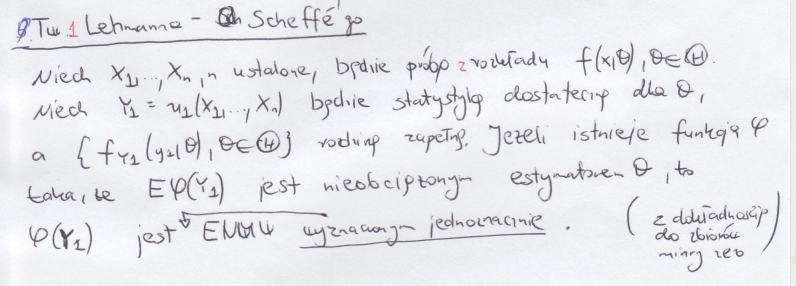 Tw 1 Lehmanna - Scheffé'go
Niech X₁,..., Xₙ, n ustalone, będzie próbą z rozkładu f(x,θ), θ∈Θ.
Niech Y₁ = u₁(X₁,..., Xₙ) będzie statystyką dostateczną dla θ,
a {f_Y₁(y₁,θ), θ∈Θ} rodziną zupełną. Jeżeli istnieje funkcja φ
taka, że Eφ(Y₁) jest nieobciążonym estymatorem θ, to
φ(Y₁) jest ENMW wyznaczonym jednoznacznie. (z dokładnością
do zbiorów
miary zero)